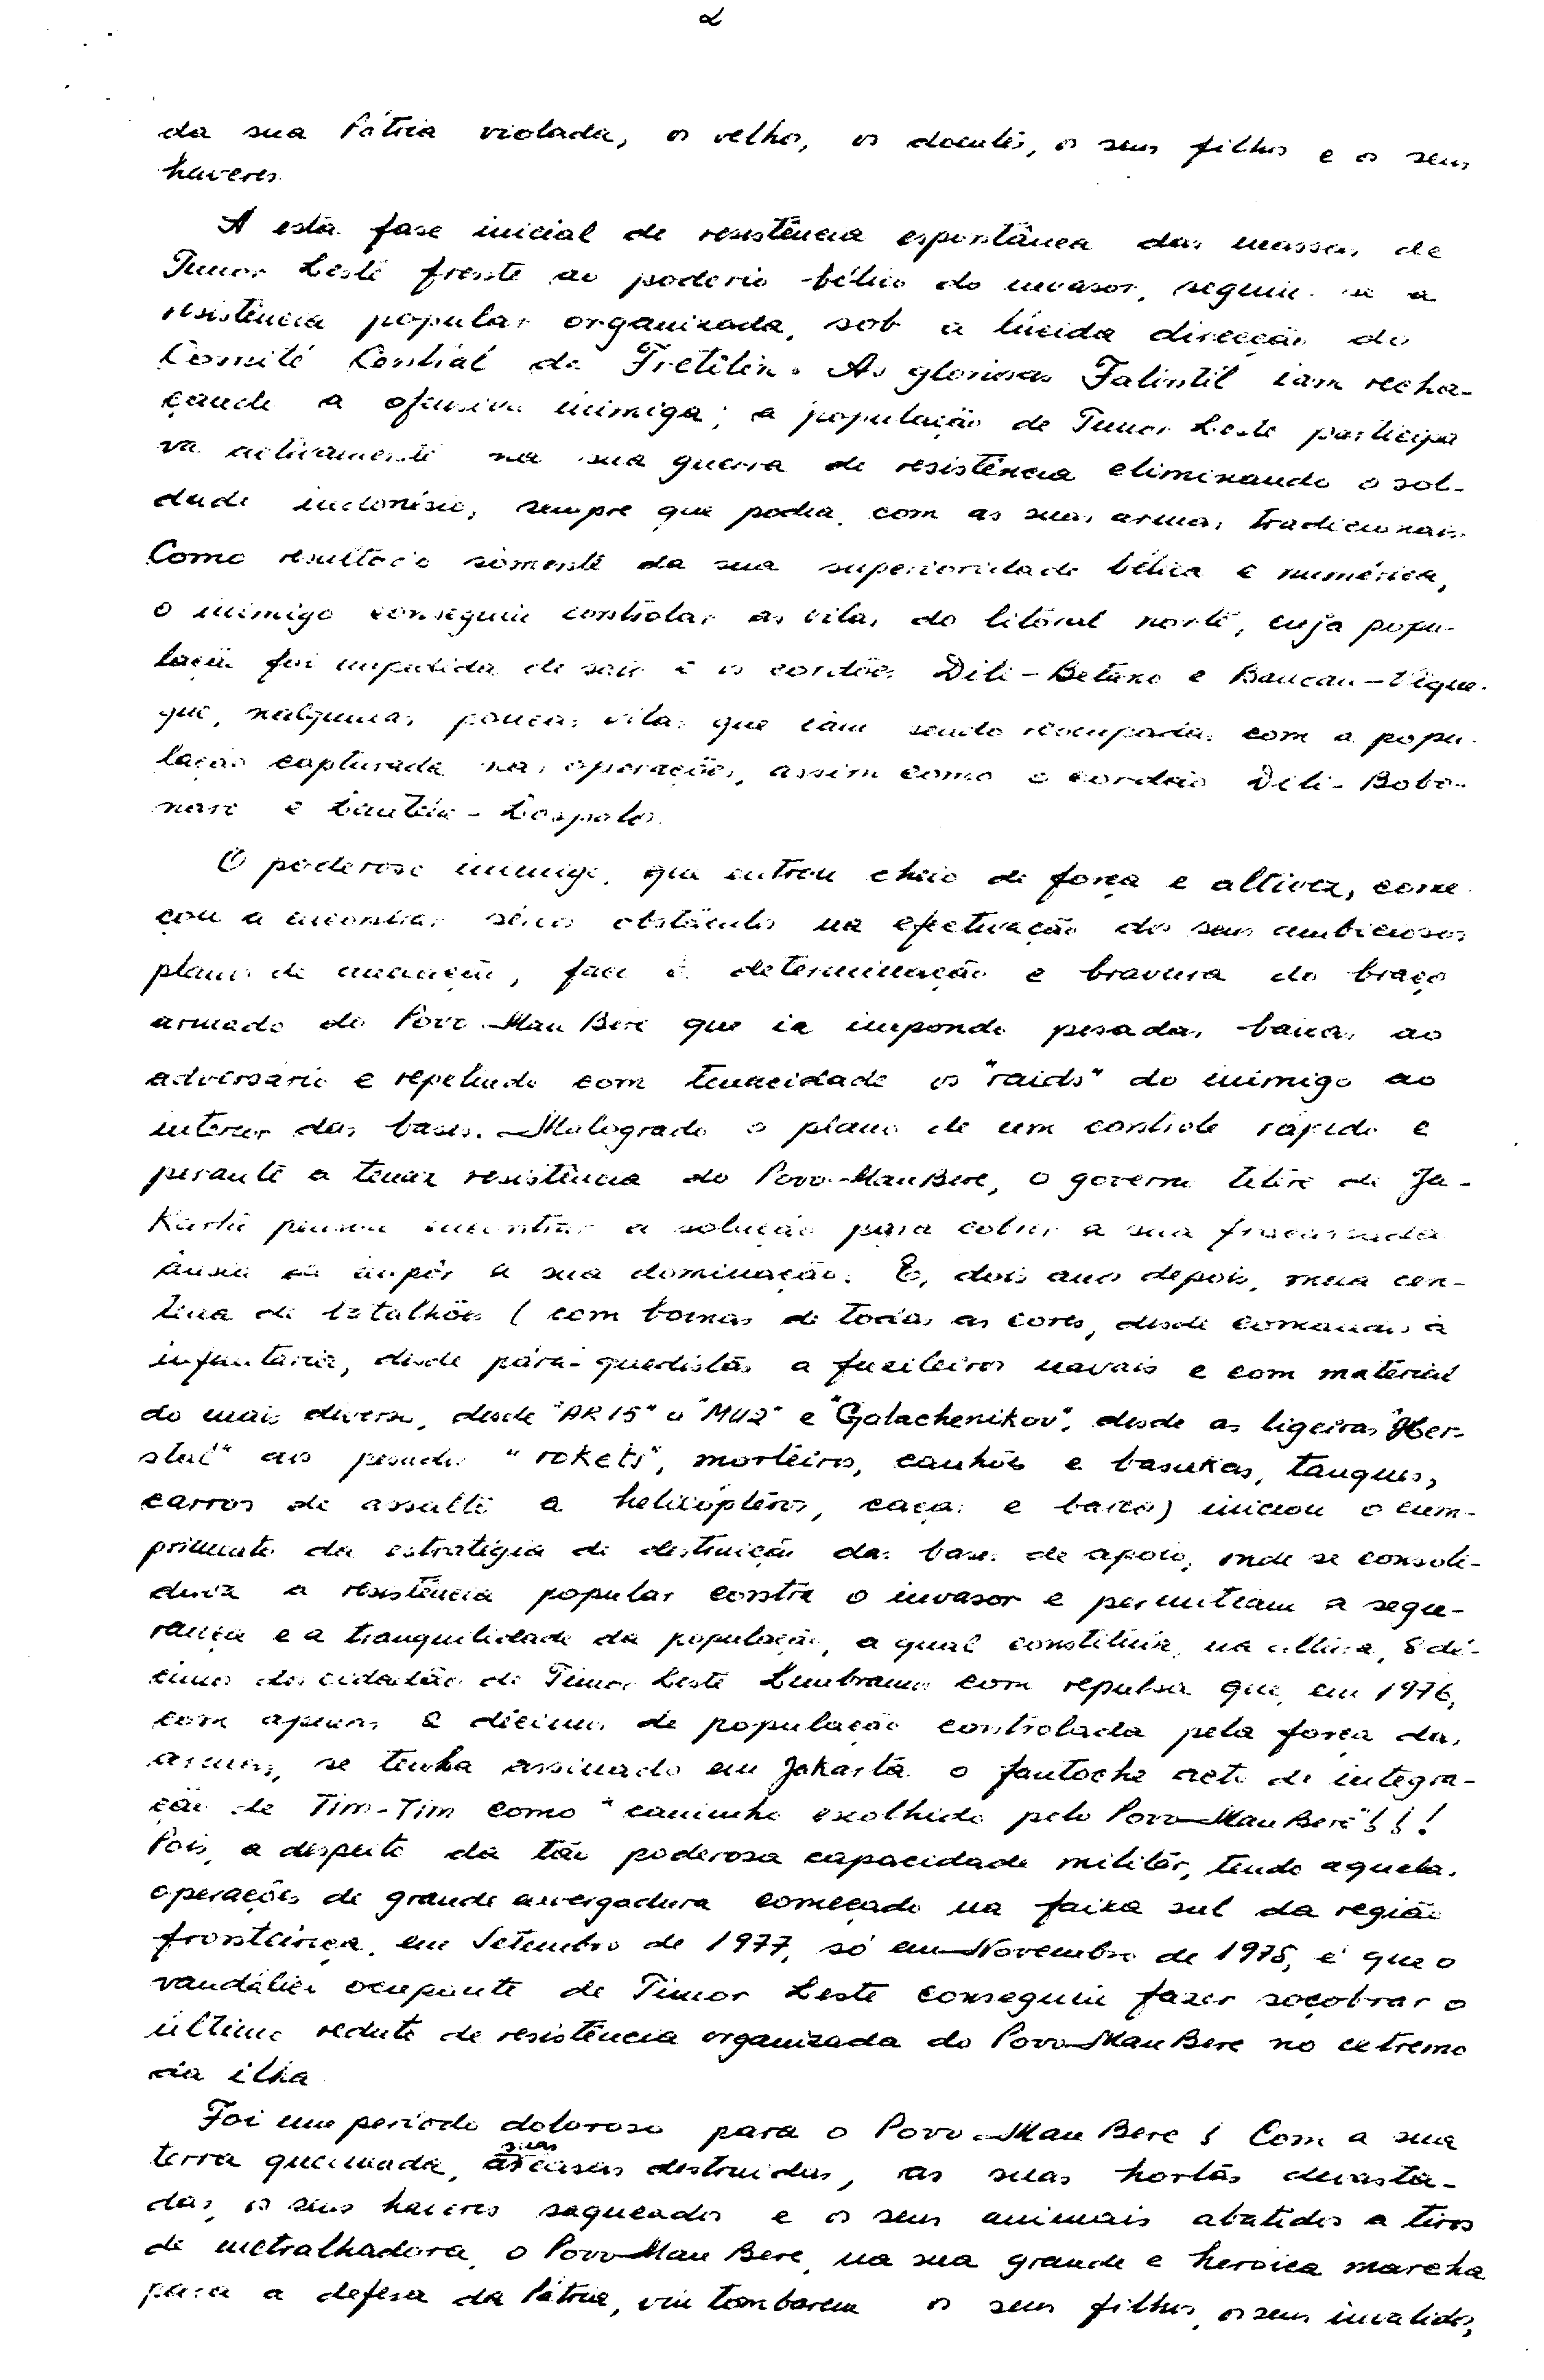 2
da sua Pátria violada, os velhos, os doentes, os seus filhos e os seus
haveres.
A esta fase inicial de resistência espontânea das massas de
Timor Leste frente ao poderio bélico do invasor, seguiu-se a
resistência popular organizada, sob a lúcida direcção do
Comité Central da Fretilin. As gloriosas Falintil iam recha-
çando a ofensiva inimiga; a população de Timor Leste participa
va activamente na sua guerra de resistência eliminando o sol-
dado indonésio, sempre que podia, com as suas armas tradicionais.
Como resultado sòmente da sua superioridade bélica e numérica,
o inimigo conseguiu controlar as vilas do litoral norte, cuja popu-
lação foi impedida de sair e os cordões Dili-Betano e Baucau-Vique-
que, nalgumas poucas vilas que iam sendo reocupadas com a popu-
lação capturada nas operações, assim como o cordão Dili-Bobo-
naro e Lautém-Lospalos.
O poderoso inimigo, que entrou cheio de força e altivez, come-
çou a encontrar sérios obstáculos na efectivação dos seus ambiciosos
planos de anexação, face à determinação e bravura do braço
armado do Povo Mau Bere que ia impondo pesadas baixas ao
adversário e repelindo com tenacidade os "raids" do inimigo ao
interior das bases. Malogrado o plano de um controle rápido e
perante a tenaz resistência do Povo Mau Bere, o governo títere de Ja-
karta pensou encontrar a solução para cobrir a sua fracassada
ânsia de impôr a sua dominação. E, dois anos depois, uma cen-
tena de batalhões (com boinas de todas as cores, desde comandos à
infantaria, desde pára-quedistas a fuzileiros navais e com material
do mais diverso, desde "AR15" a "M42" e "Galachenikov", desde as ligeiras "Her-
stal" aos pesados "rokets", morteiros, canhões e basukas, tanques,
carros de assalto a helicópteros, caças e barcos) iniciou o cum-
primento da estratégia de destruição das bases de apoio, onde se consoli-
dava a resistência popular contra o invasor e permitiam a segu-
rança e a tranquilidade da população, a qual constituía, na altura, 8 dé-
cimos dos cidadãos de Timor Leste. Lembramos com repulsa que, em 1976,
com apenas 2 décimos de população controlada pela força das
armas, se tenha assinado em Jakarta o fantoche acto de integra-
ção de Tim-Tim como "caminho escolhido pelo Povo Mau Bere"!!!
Pois, a despeito da tão poderosa capacidade militar, tendo aquelas
operações de grande envergadura começado na faixa sul da região
fronteiriça, em Setembro de 1977, só em Novembro de 1978, é que o
vandálico ocupante de Timor Leste conseguiu fazer soçobrar o
último reduto de resistência organizada do Povo Mau Bere no extremo
da ilha.
Foi um período doloroso para o Povo Mau Bere! Com a sua
terra queimada, as suas casas destruidas, as suas hortas devasta-
das, os seus haveres saqueados e os seus animais abatidos a tiros
de metralhadora, o Povo Mau Bere, na sua grande e heroica marcha
para a defesa da Pátria, viu tombarem os seus filhos, os seus invalidos,